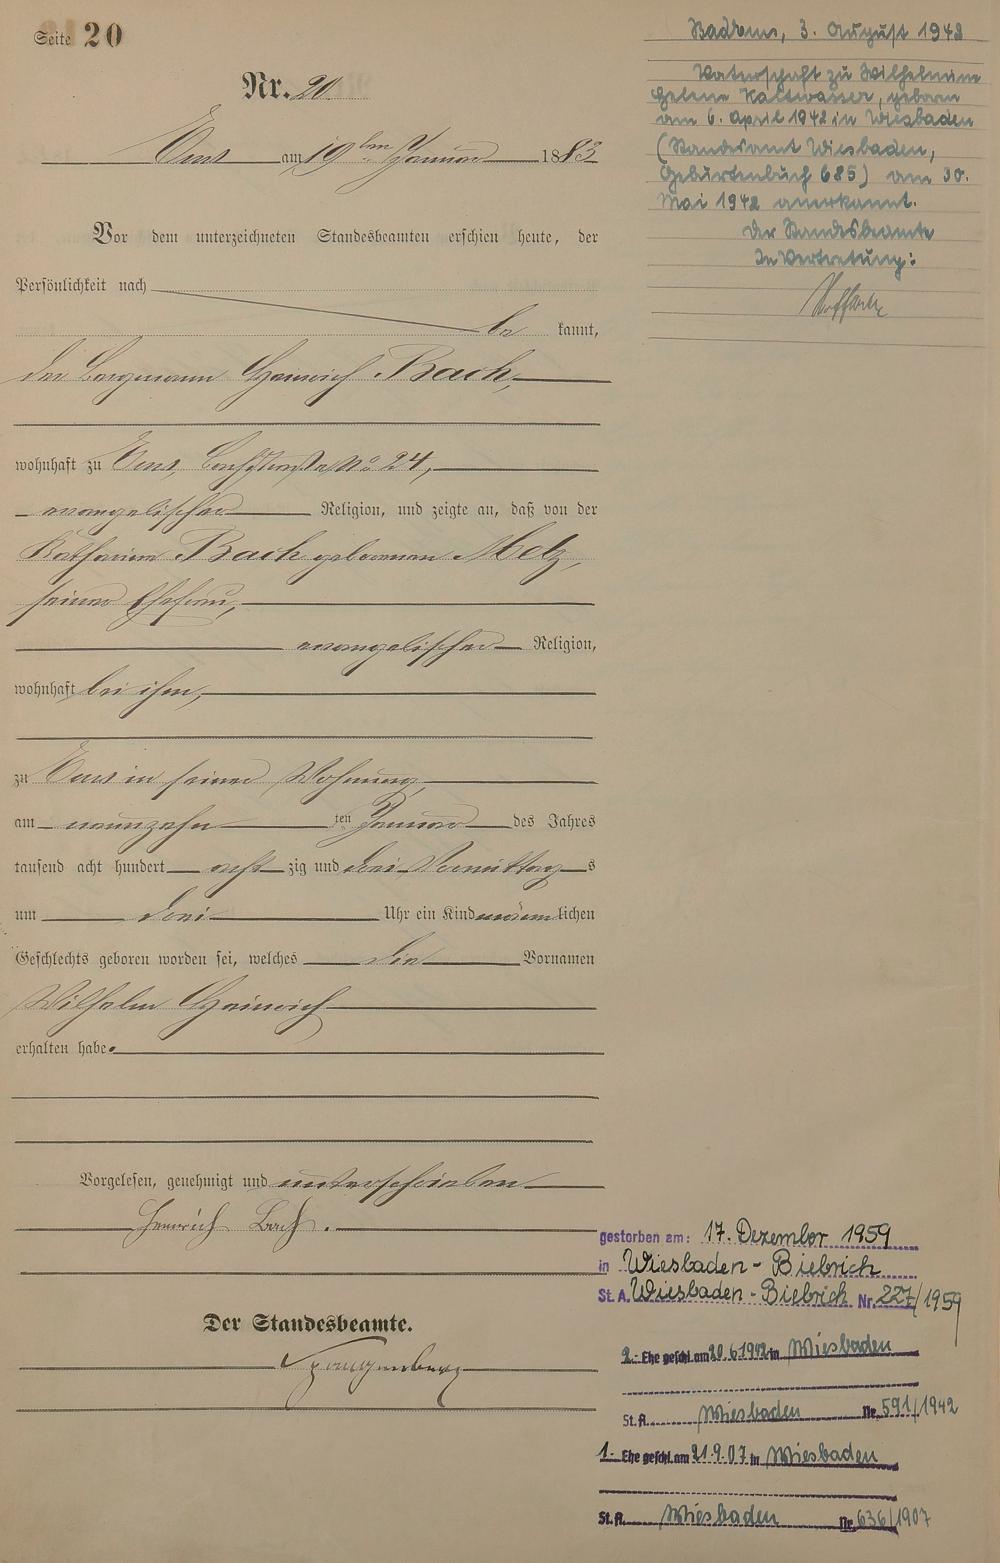 Seite 20
Nr. 20.
Ems am 19ten Januar 1883
Vor dem unterzeichneten Standesbeamten erschien heute, der
Persönlichkeit nach
be kannt,
der Bergmann Heinrich Bach,
wohnhaft zu Ems, No 24,
evangelischer Religion, und zeigte an, daß von der
Katharina Bach geborenen Melz,
seiner Ehefrau,
evangelischer Religion,
wohnhaft bei ihm,
zu Ems in seiner Wohnung,
am neunzehn ten Januar des Jahres
tausend acht hundert acht zig und drei Vormittag s
um drei Uhr ein Kind männ lichen
Geschlechts geboren worden sei, welches die Vornamen
Wilhelm Heinrich
erhalten habe.
Vorgelesen, genehmigt und unterschrieben
Heinrich Bach.
Der Standesbeamte.
Spangenberg
Bad Ems, 3. August 1942
Vaterschaft zu Wilhelmine
Helene Kaltwasser, geboren
am 6. April 1942 in Wiesbaden
(Standesamt Wiesbaden,
Geburtenbuch 685) am 30.
Mai 1942 anerkannt.
Der Standesbeamte
In Vertretung:
gestorben am: 17. Dezember 1959
in Wiesbaden-Biebrich
St. A. Wiesbaden-Biebrich Nr. 227/1959
2. Ehe geschl. am 20.6.1942 in Wiesbaden
St. A. Wiesbaden Nr. 591/1942
1. Ehe geschl. am 21.9.07 in Wiesbaden
St. A. Wiesbaden Nr. 636/1907